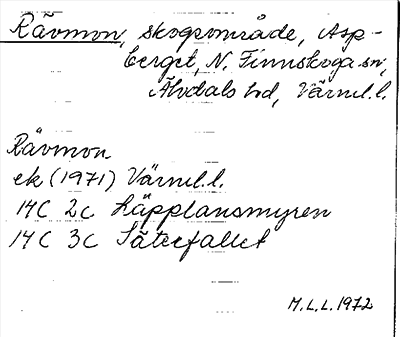 Råvmon, skogsområde, Asp-
berget, N. Finnskoga sn,
Älvdals hd, Värml.l.
Råvmon
ek (1971) Värml.l.
14C 2c Läpplansmyren
14C 3c Säterfallet
M.L.L. 1972